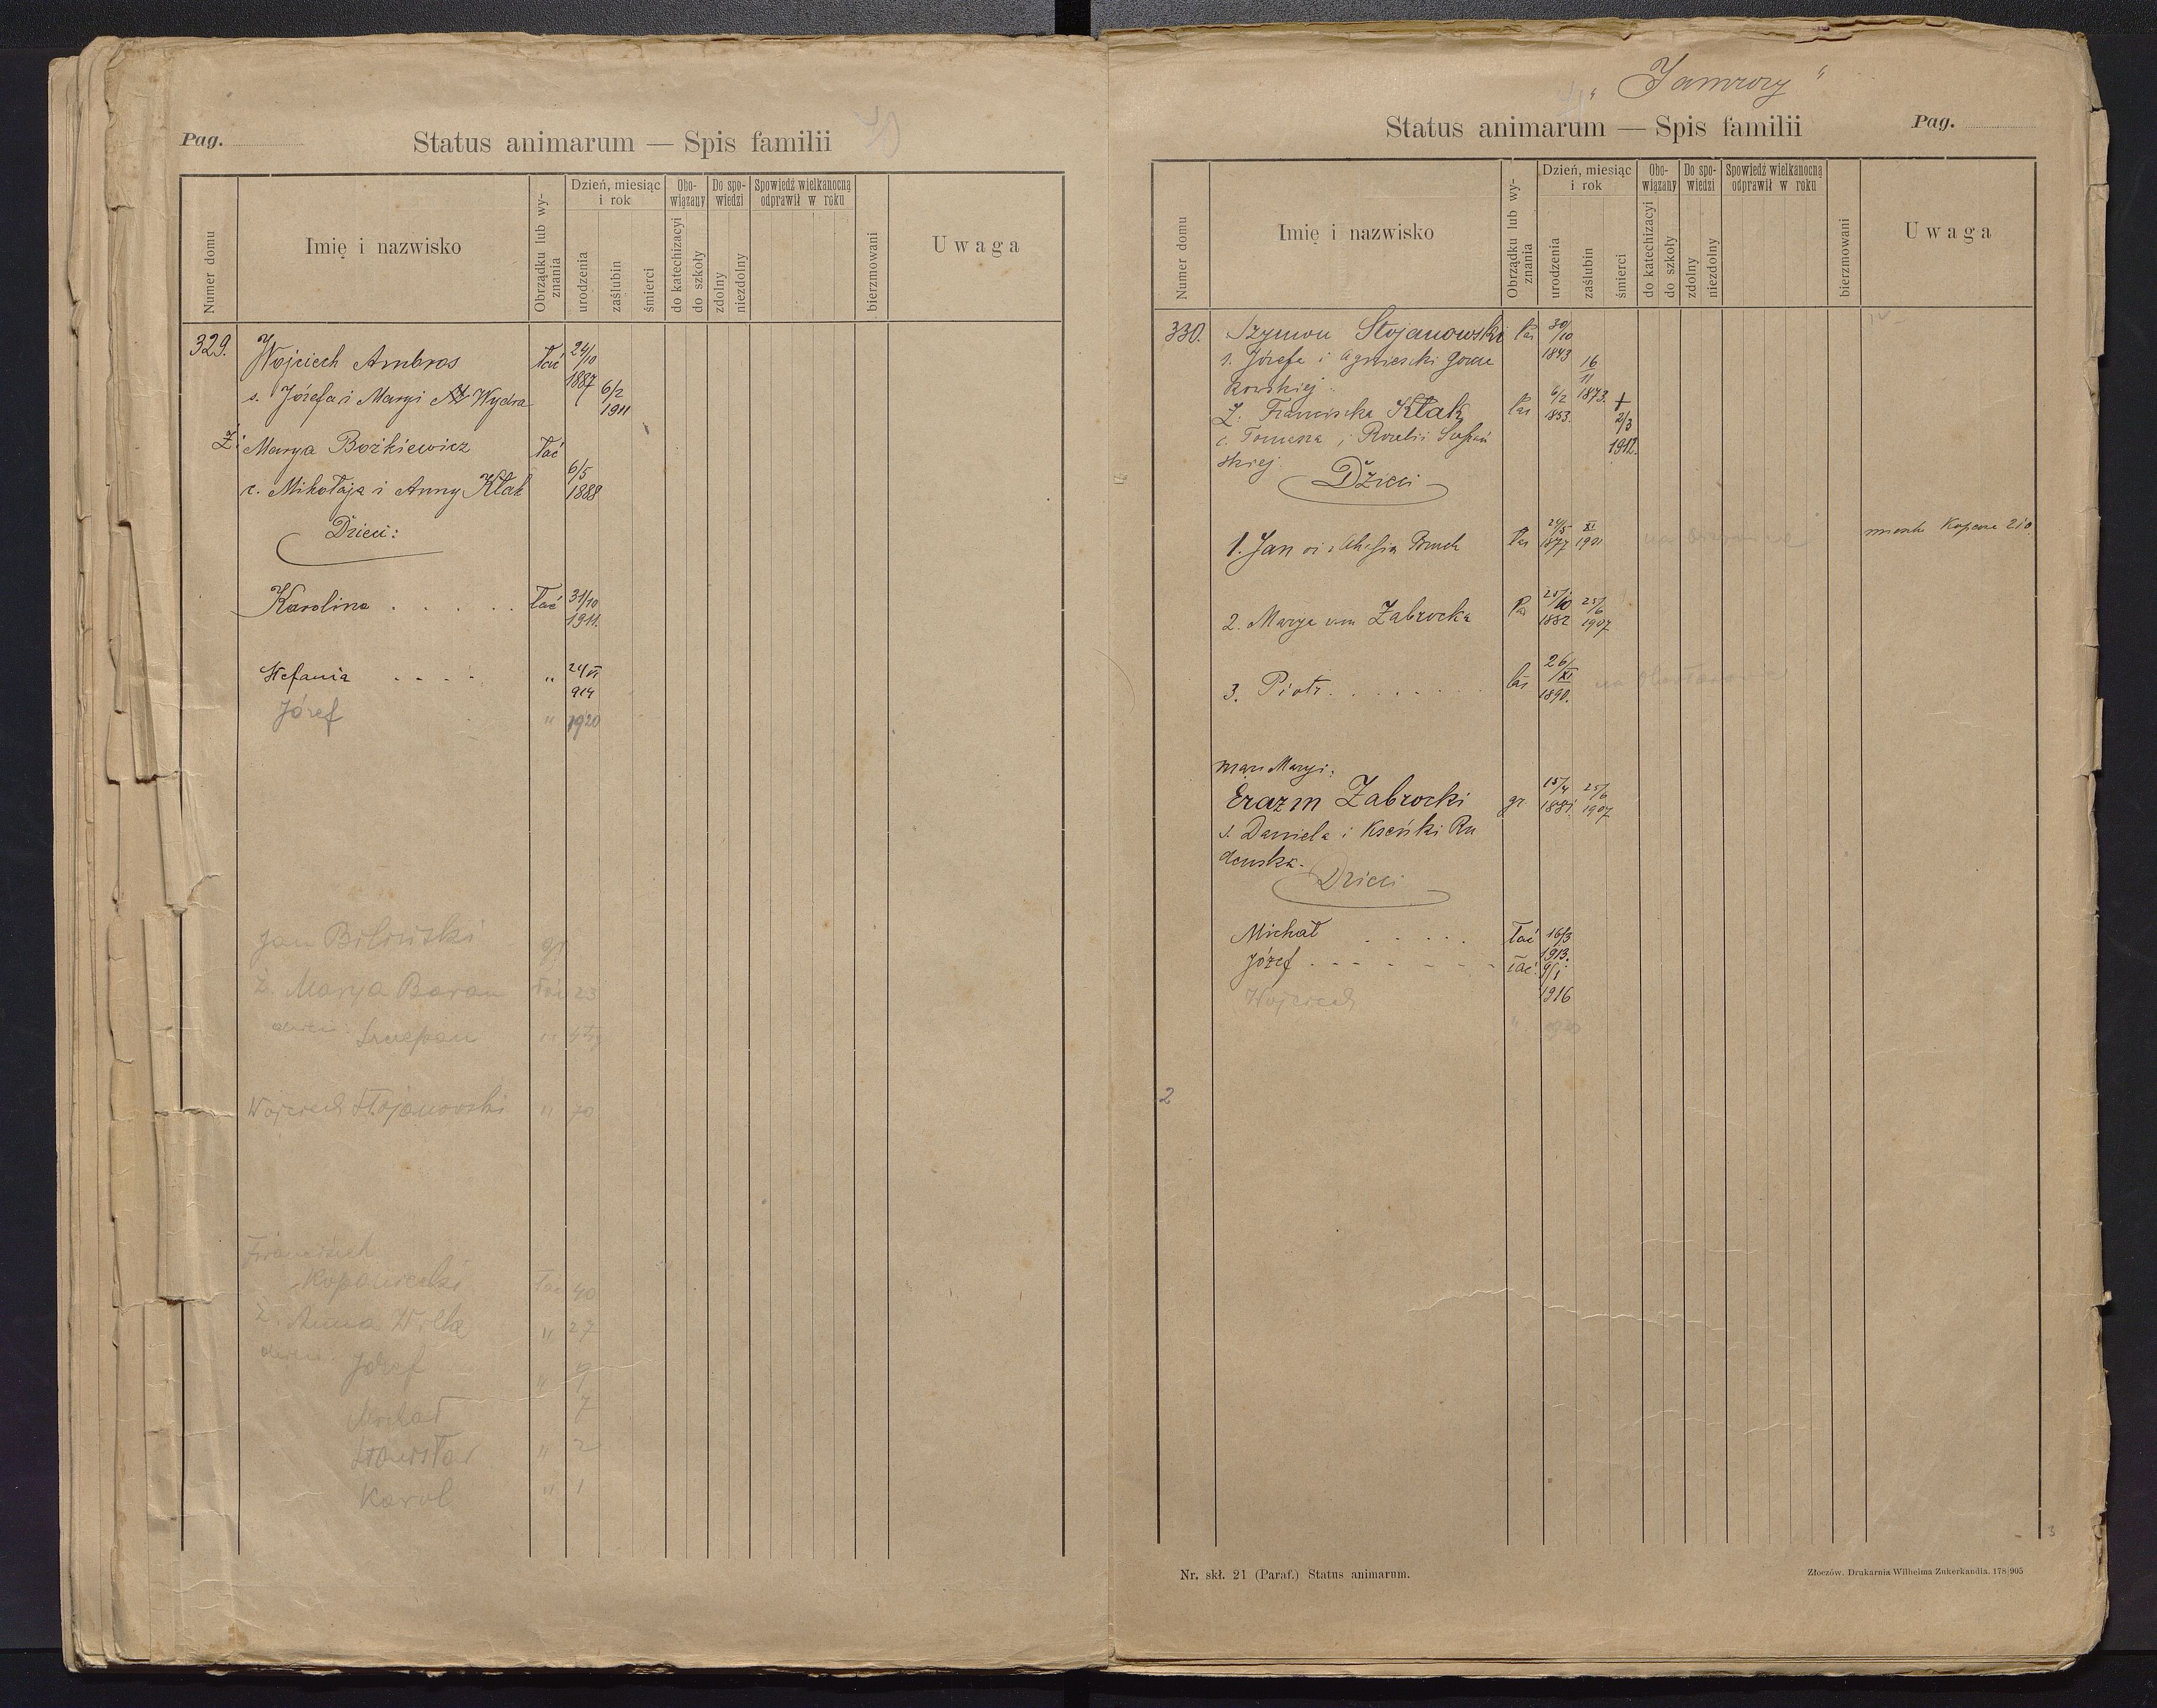 Pag.
Status animarum — Spis familii
Numer domu
Imię i nazwisko
Obrządku lub wyznania
Dzień, miesiąc i rok
urodzenia
zaślubin
śmierci
Obowiązany
do katechizacyi
do szkoły
Do spowiedzi
zdolny
niezdolny
Spowiedź wielkanocną odprawił w roku
bierzmowani
Uwaga
329. Wojciech Ambros łać 24/10 1887 6/2 1911
s. Józefa i Maryi Wydra
Ż: Marya Bożkiewicz łać 6/5 1888
c. Mikołaja i Anny Kłak
Dzieci:
Karolina . . . . . łać 31/10 1911.
Stefania . . . . " 24/VI 914
Józef " 1920
Jan Biliński gr
Ż. Marya Baran łać 23
dzieci: Szczepan "
Wojciech Stojanowski " 70
Franciszek
Kopaniecki łać 40
Ż. Anna Wilk " 27
dzieci: Józef " 9
Michał 7
Stanisław " 2
Karol " 1
"Jamrozy"
Status animarum — Spis familii
Pag.
Numer domu
Imię i nazwisko
Obrządku lub wyznania
Dzień, miesiąc i rok
urodzenia
zaślubin
śmierci
Obowiązany
do katechizacyi
do szkoły
Do spowiedzi
zdolny
niezdolny
Spowiedź wielkanocną odprawił w roku
bierzmowani
Uwaga
330. Szymon Stojanowski 30/10 1843 16/11 1873.
s. Józefa i Agnieszki
Ż. Franciszka Kłak 6/2 1853. + 2/3 1912.
c. Tomasza i Rozalii
skiej
Dzieci
1. Jan 24/5 1877 XI 1901
2. Marya Zabrocka 25/10 1882 25/6 1907
3. Piotr . . . . . . . 26/XI 1890.
mąż Maryi:
Erazm Zabrocki gr. 15/4 1881. 25/6 1907
s. Daniela i Kseńki Ru
denska.
Dzieci
Michał . . . . . łać 16/3 1913.
Józef . . . . . . łać. 9/1 1916
Wojciech "
2
3
Nr. skł. 21 (Paraf.) Status animarum.
Złoczów. Drukarnia Wilhelma Zukerkandla. 178/905